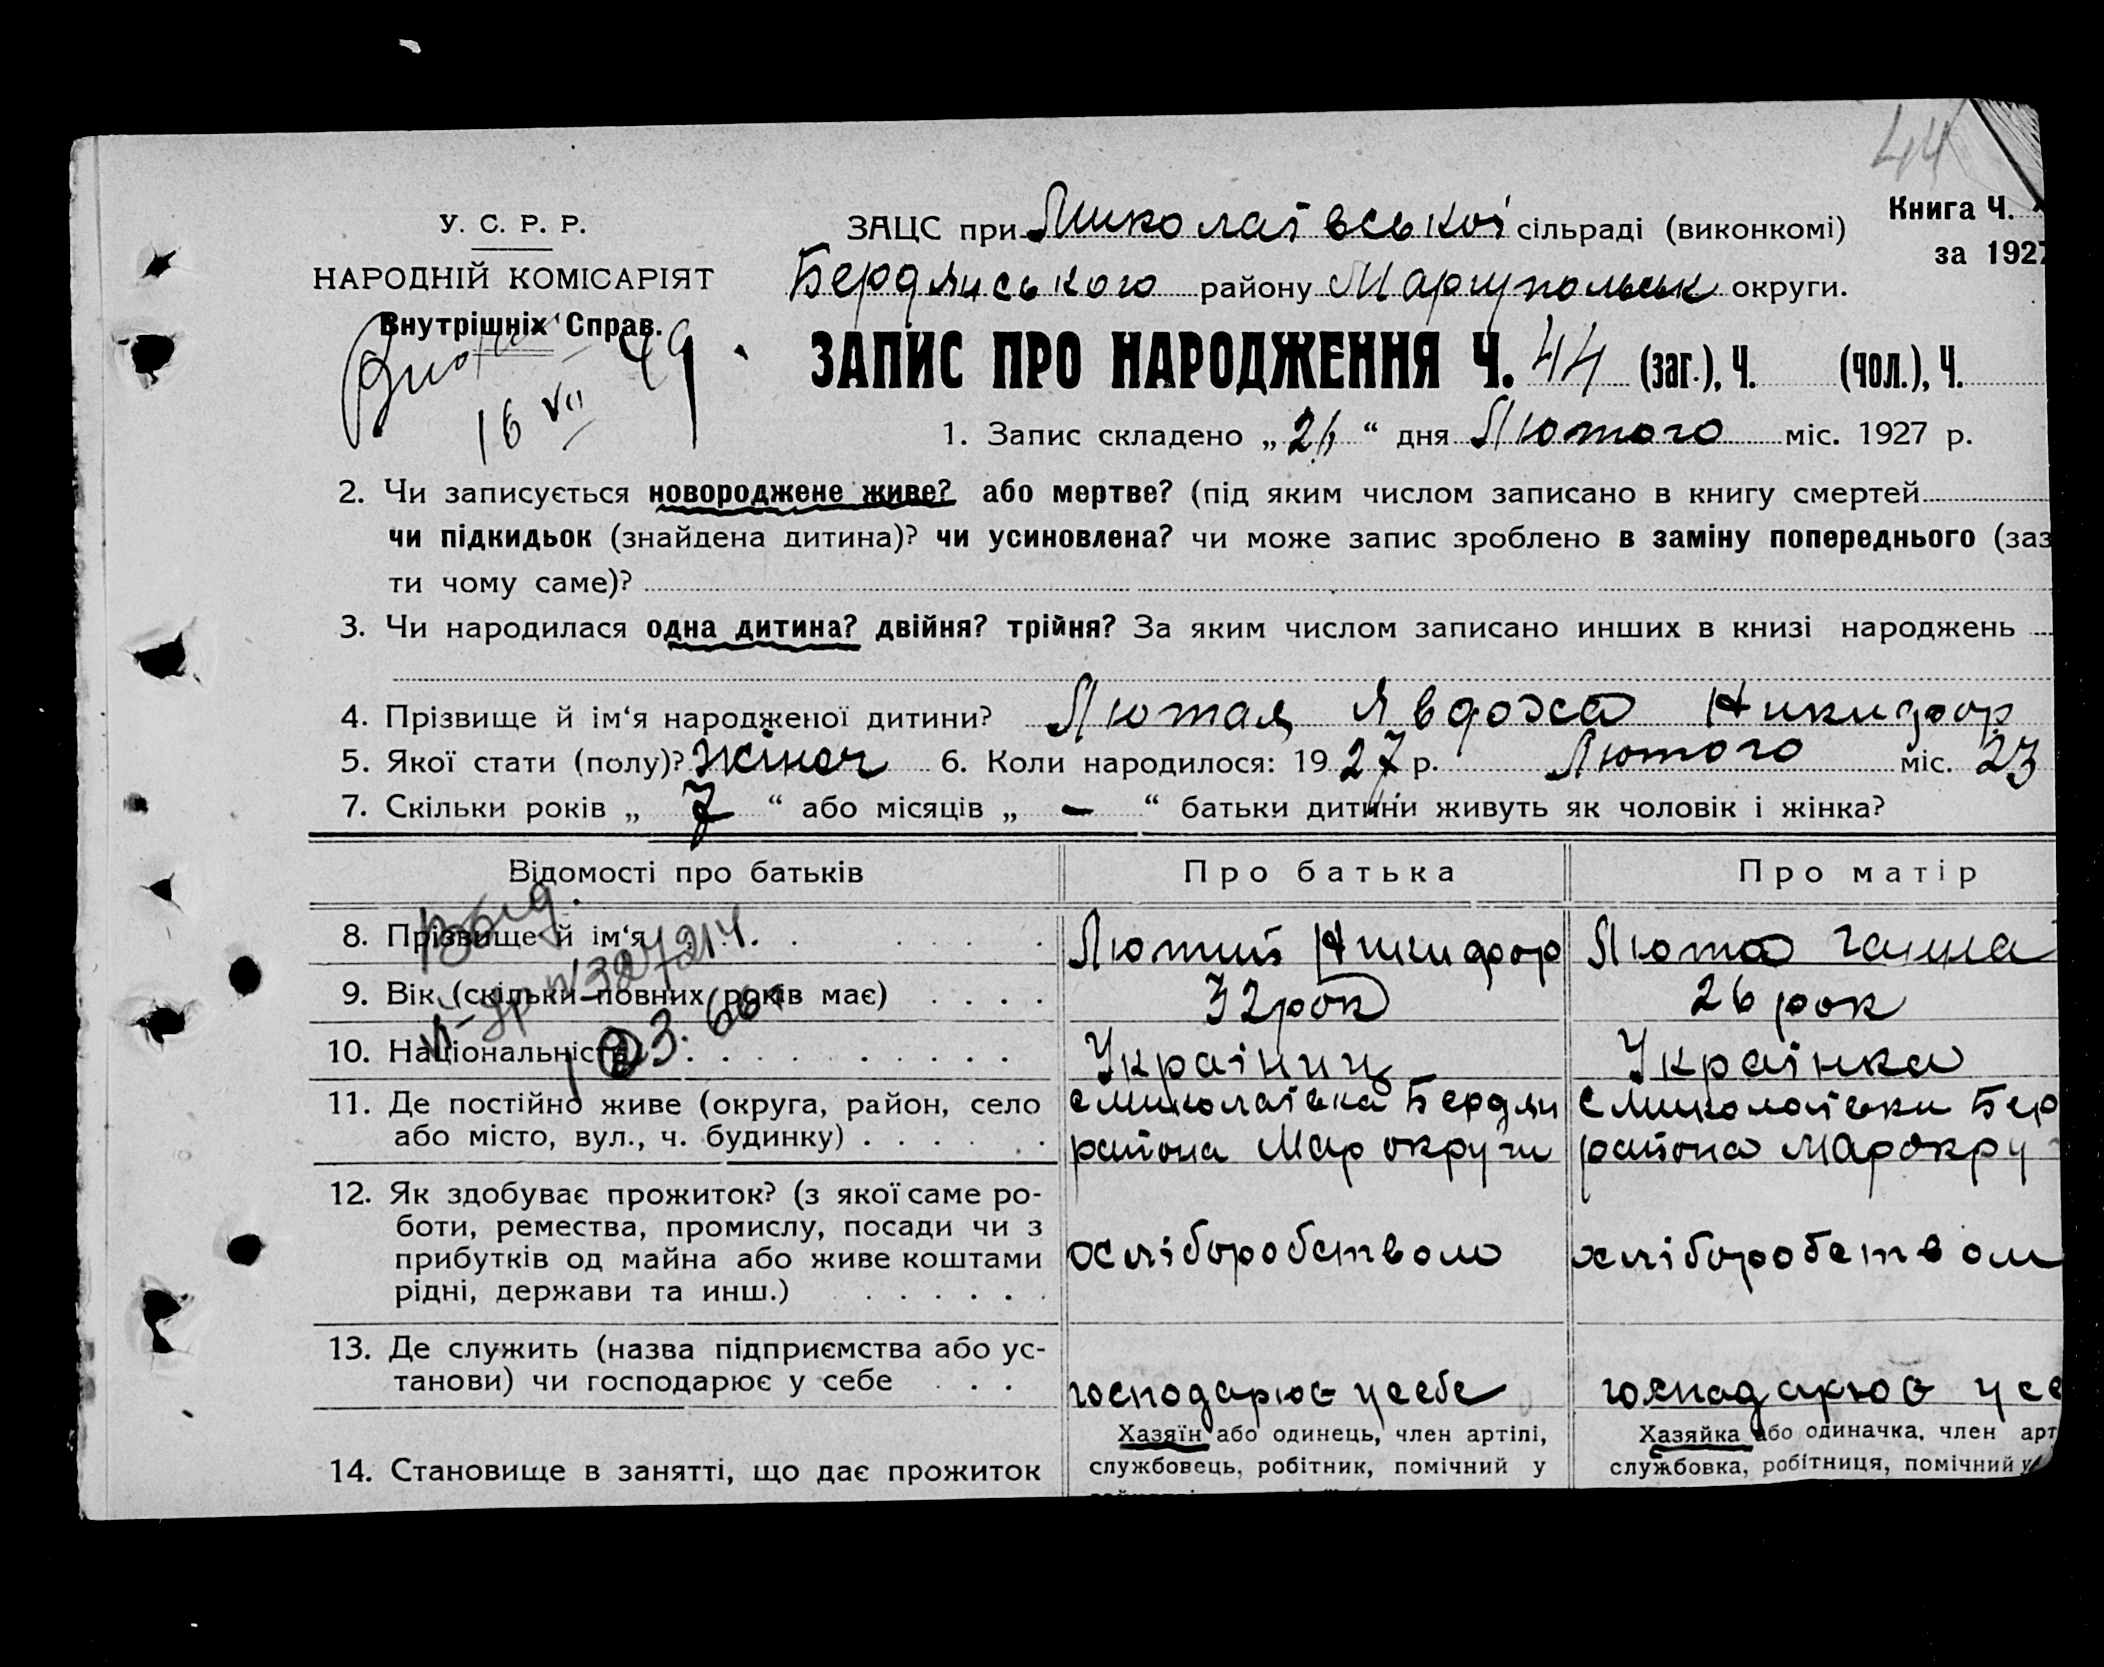 44
У. С. Р. Р.
НАРОДНІЙ КОМІСАРІЯТ
Внутрішніх Справ.
16 VII 49
ЗАЦС при Миколаївської сільраді (виконкомі)
Книга Ч.
за 1927
Бердянського району Маріупольськ округи.
ЗАПИС ПРО НАРОДЖЕННЯ Ч. 44 (заг.), Ч. (чол.), Ч.
1. Запис складено „ 26 “ дня Лютого міс. 1927 р.
2. Чи записується новороджене живе? або мертве? (під яким числом записано в книгу смертей
чи підкидьок (знайдена дитина)? чи усиновлена? чи може запис зроблено в заміну попереднього (заз
ти чому саме)?
3. Чи народилася одна дитина? двійня? трійня? За яким числом записано инших в книзі народжень
4. Прізвище й ім‘я народженої дитини? Лютая Явдоха Никифор
5. Якої стати (полу)? жіноч 6. Коли народилося: 1927 р. Лютого міс. 23
7. Скільки років „ 7 “ або місяців „ — “ батьки дитини живуть як чоловік і жінка?
Відомості про батьків Про батька Про матір
Выд.
8. Прізвище й ім‘я Лютий Никифор Люта Ганна
9. Вік (скільки повних років має) 32 рок 26 рок
10. Національність Україниц Українка
11. Де постійно живе (округа, район, село
або місто, вул., ч. будинку)
с Миколаївка Бердян
района Мар округи
с Миколаївки Бер
района Марокру
12. Як здобуває прожиток? (з якої саме ро-
боти, ремества, промислу, посади чи з
прибутків од майна або живе коштами
рідні, держави та инш.)
хліборобством
хліборобством
13. Де служить (назва підприємства або ус-
танови) чи господарює у себе
господарює у себе
господарює у се
14. Становище в занятті, що дає прожиток
Хазяїн або одинець, член артілі,
службовець, робітник, помічний у
Хазяйка або одиначка, член арт
службовка, робітниця, помічний у